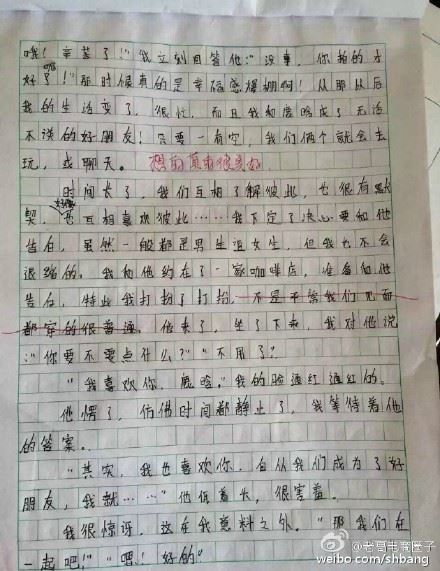 哦！辛苦了！”我立刻回答他：“没事，你拍的才
好了啦！”那时候真的是幸福感爆棚啊！从那以后
我的生活变了，很忙，而且我和鹿晗成了无话
不谈的好朋友！只要一有空，我们俩个就会去
玩，或聊天。想的真有很美好
时间长了，我们互相了解彼此，也很有默
契，好像互相喜欢彼此……我下定了决心要和他
告白，虽然一般都是男生追女生，但我也不会
退缩的。我和他约在了一家咖啡店，准备和他
告白，特此我打扮了打扮，不是平常我们见面
都穿的很普通。他来了，坐了下来，我对他说
：“你要不要点什么？”“不用了？”
“我喜欢你，鹿晗。”我的脸通红通红的。
他愣了，仿佛时间都静止了，我等待着他
的答案。
“其实，我也喜欢你，自从我们成为了好
朋友，我就……”他低着头，很害羞。
我很惊讶，这在我意料之外。“那我们在
一起吧！”“嗯！好的”
@老葛电商圈子
weibo.com/shbang